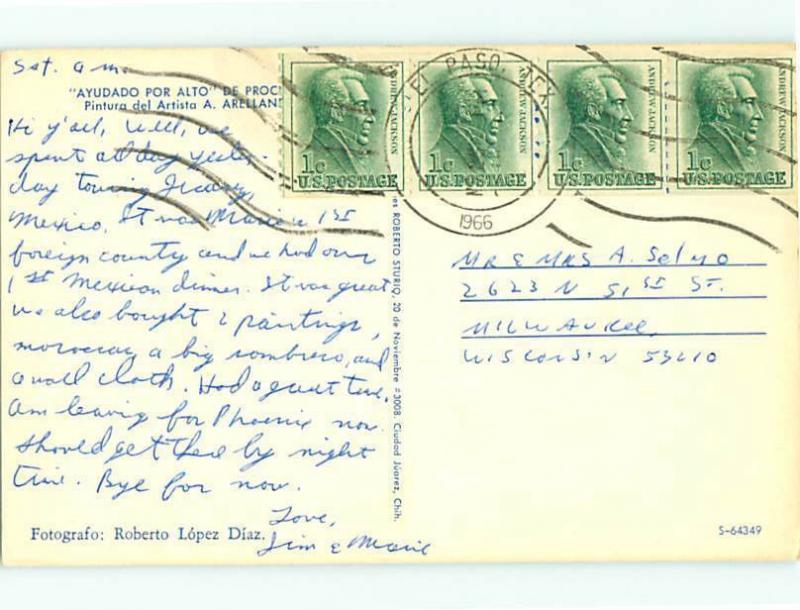 Sat. a.m.
"AYUDADO POR ALTO" DE PROCI
Pintura del Artista A. ARELLAN
Hi y'all, Well, we
spent all day yester-
day touring Juarez,
Mexico. It was Marie's 1st
foreign country and we had our
1st Mexican dinner. It was great
We also bought 2 paintings,
moroccas, a big sombrero, and
a wall cloth. Had a great time.
Am leaving for Phoenix now.
Should get there by night
time. Bye for now.
Love,
Jim & Marie
Fotografo: Roberto López Díaz.
ROBERTO STURIQ, 20 de Noviembre #3008. Ciudad Júarez, Chih.
EL PASO, TEX
1966
ANDREW JACKSON
1c
U.S. POSTAGE
ANDREW JACKSON
1c
U.S. POSTAGE
ANDREW JACKSON
1c
U.S. POSTAGE
ANDREW JACKSON
1c
U.S. POSTAGE
MR & MRS A. Selmo
2623 N 51st ST.
MILWAUKEE,
WISCONSIN 53210
S-64349